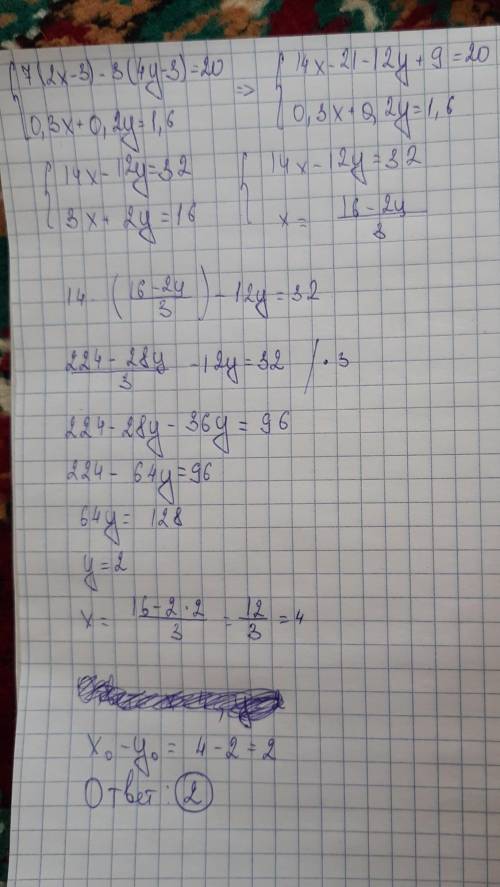 { 7(2x-3)-3(4y-3)=20 => { 14x-21-12y+9=20
0,3x+0,2y=1,6 0,3x+0,2y=1,6
{ 14x-12y=32 { 14x-12y=32
3x+2y=16 x= (16-2y)/3
14·(16-2y/3)-12y=32
224-28y/3 -12y=32 /·3
224-28y-36y=96
224-64y=96
64y=128
y=2
x= 16-2·2/3 = 12/3 =4
x₀-y₀= 4-2=2
Ответ: 2